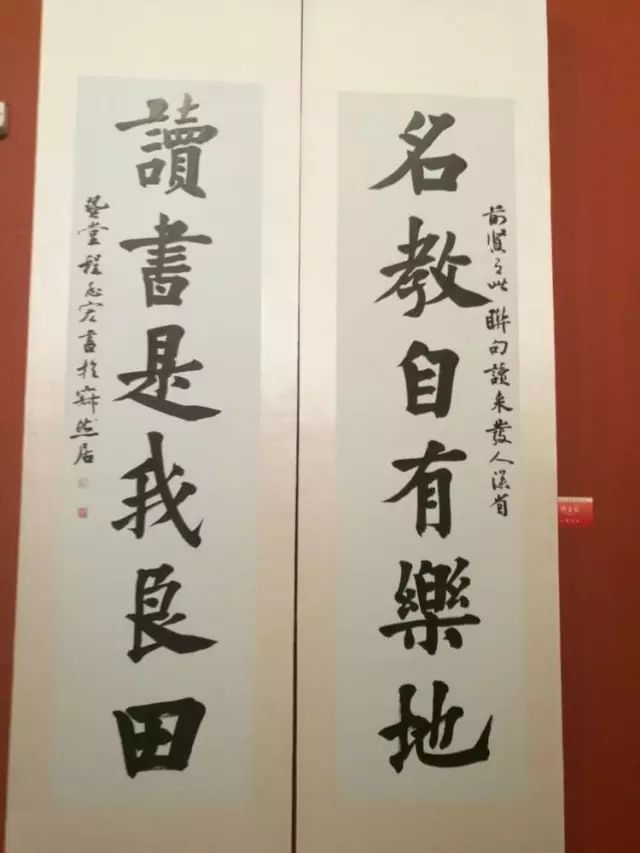 名教自有樂地
前賢之此聯句讀來發人深省
讀書是我良田
程志宏書於寂然居